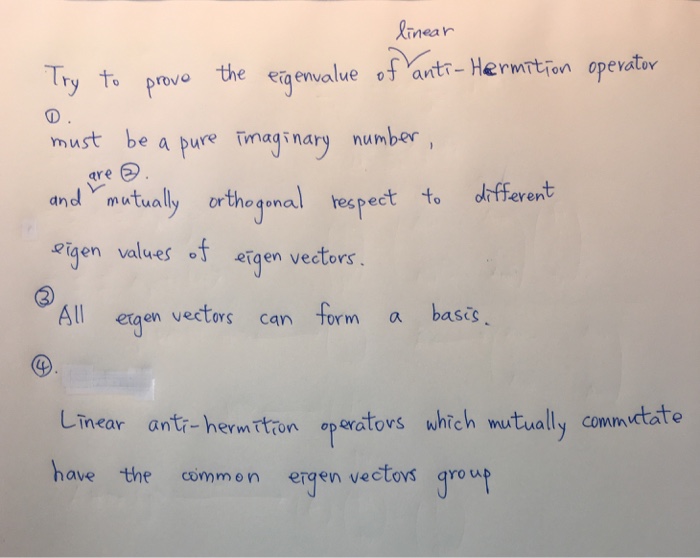 linear
Try to prove the eigenvalue of anti-Hermition operator
①.
must be a pure imaginary number,
are ②.
and mutually orthogonal respect to different
eigen values of eigen vectors.
③
All eigen vectors can form a basis.
④.
Linear anti-hermition operators which mutually commutate
have the common eigen vectors group